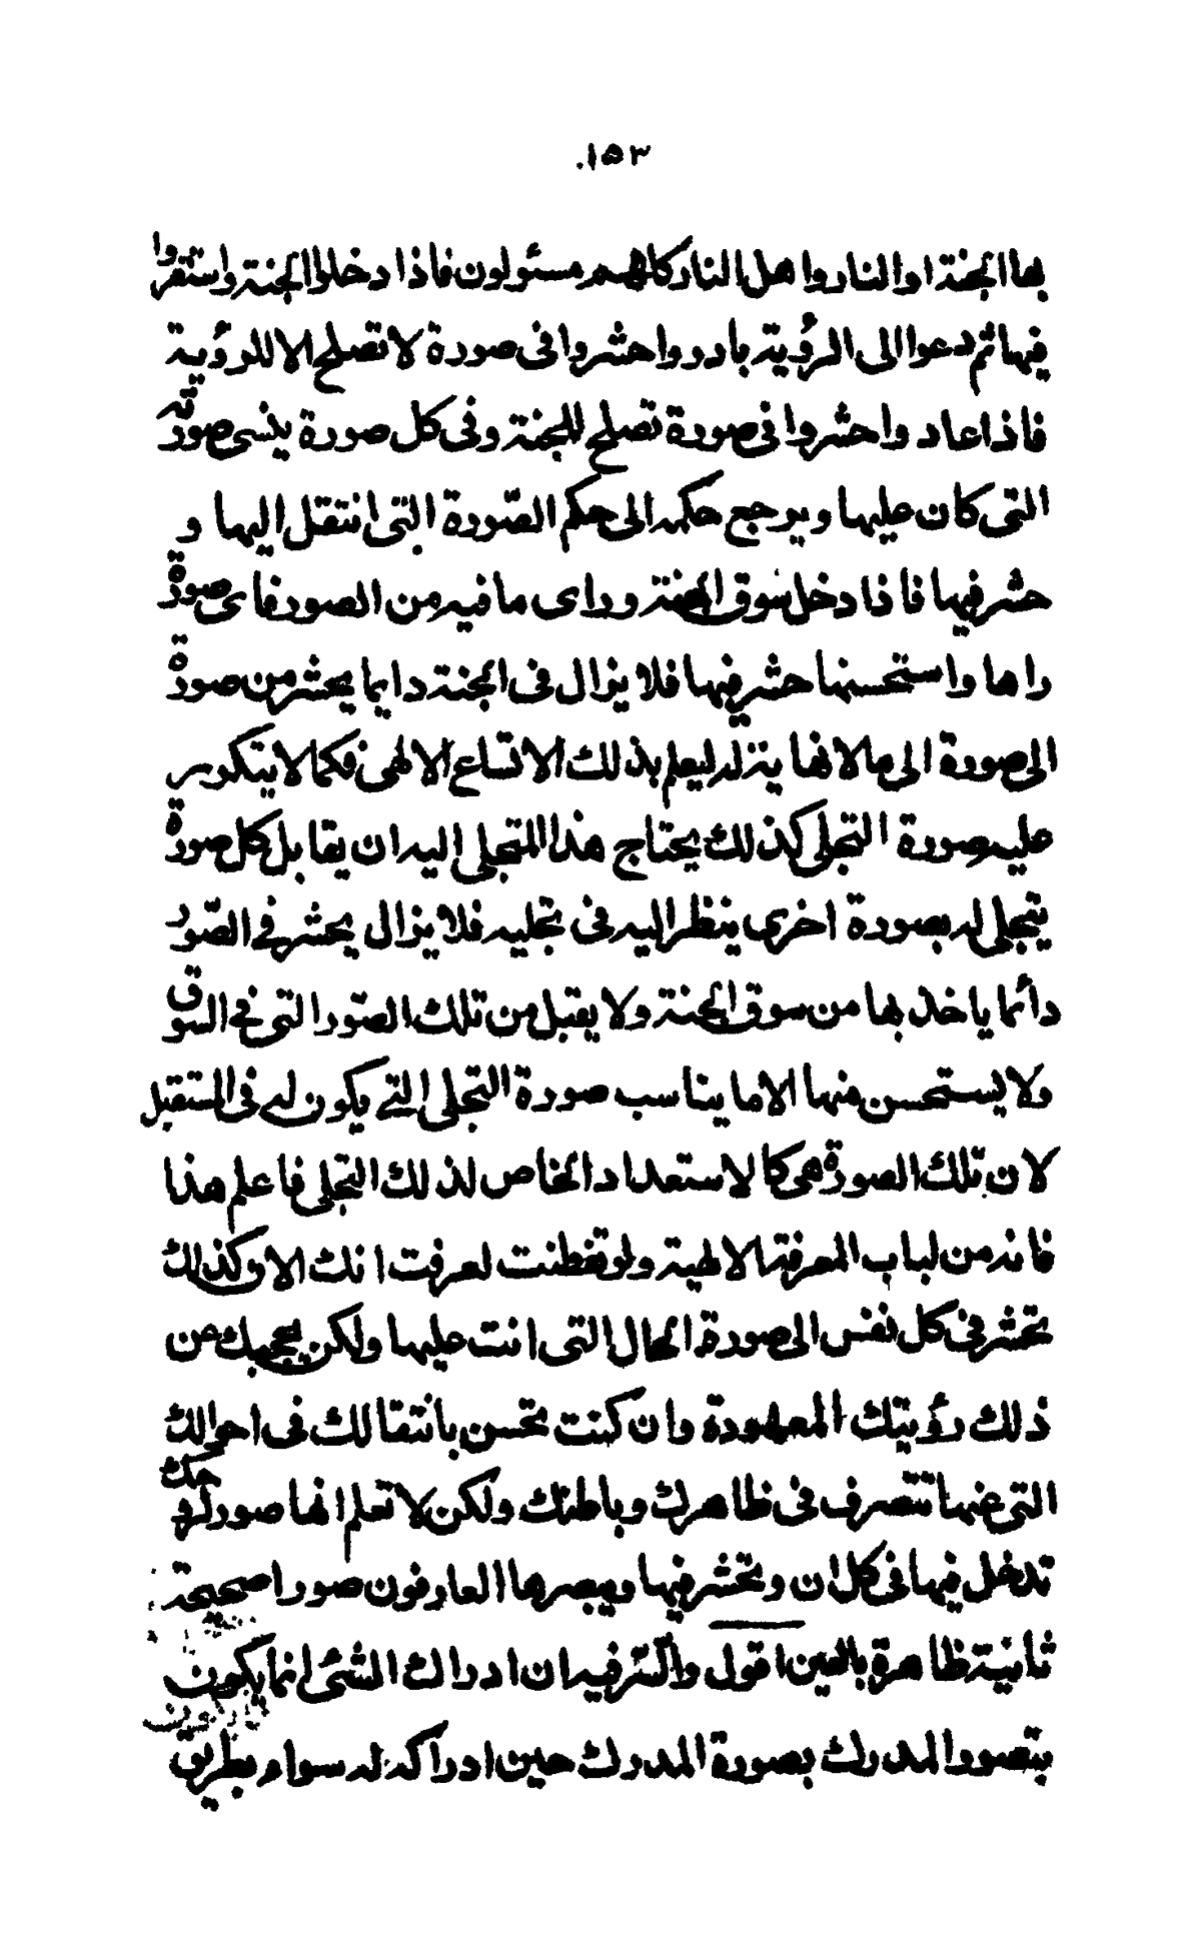 ١٥٣.
بها الجنة او النار واهل النار كلهم مسئولون فاذا دخلوا الجنة واستقروا
فيها ثم دعوا الى الرؤية بادروا حشروا فى صورة لا تصلح الا للرؤية
فاذا عادوا حشروا فى صورة تصلح للجنة وفى كل صورة ينسى صورته
التى كان عليها ويرجع حكمه الى حكم الصّورة التى انتقل اليها و
حشر فيها فاذا دخل سوق الجنة وراى ما فيه من الصور فاى صورة
راها واستحسنها حشر فيها فلا يزال فى الجنة دايما يحشر من صورة
الى صورة الى ما لا نهاية له ليعلم بذلك الاتساع الالهى فكما لا يتكرر
عليه صورة التجلى كذلك يحتاج هذا المتجلى اليه ان يقابل كل صورة
يتجلى له بصورة اخرى ينظر اليه فى تجليه فلا يزال يحشر فى الصّور
دائما ياخذ بها من سوق الجنة ولا يقبل من تلك الصّور التى فى السوق
ولا يستحسن منها الا ما يناسب صورة التجلى التى يكون له فى المستقبل
لان تلك الصورة هى كالاستعداد الخاص لذلك التجلى فاعلم هذا
فانه من لباب المعرفة الالهية ولو تفطنت لعرفت انك الان كذلك
تحشر فى كل نفس الى صورة الحال التى انت عليها ولكن يحجبك عن
ذلك رؤيتك المعهودة وان كنت تحسن بانتقالك فى احوالك
التى عنها تتصرف فى ظاهرك وباطنك ولكن لا تعلم انها صور لروحك
تدخل فيها فى كل ان وتحشر فيها ويبصرها العارفون صورا صحيحة
ثانية ظاهرة بالعين اقول والسّر فيه ان ادراك الشئ انما يكون
بتصور المدرك بصورة المدرك حين ادراكه له سواء بطريق